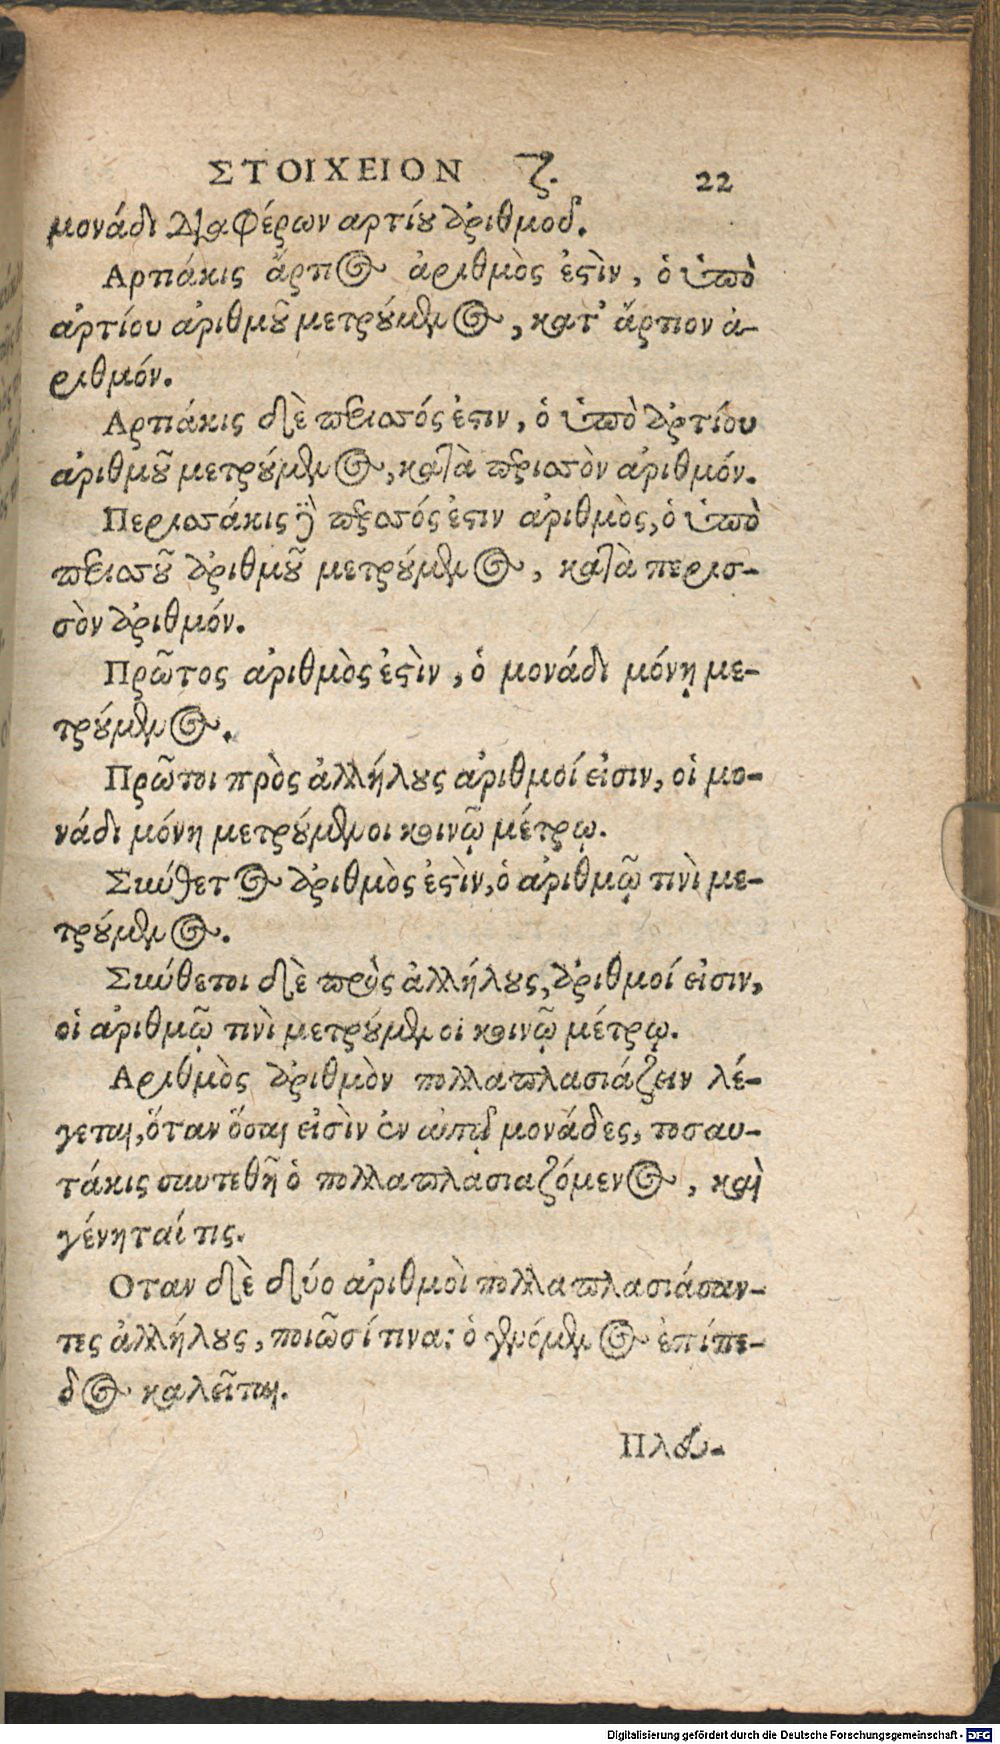 ΣΤΟΙΧΕΙΟΝ ζ. 22
μονάδι διαφέρων αρτίου ἀριθμοῦ.
Αρτιάκις ἄρτιος ἀριθμὸς ἐστὶν, ὁ ὑπὸ
ἀρτίου ἀριθμοῦ μετρούμενος, κατ' ἄρτιον ἀ-
ριθμόν.
Αρτιάκις δὲ περισσός ἐστιν, ὁ ὑπὸ ἀρτίου
ἀριθμοῦ μετρούμενος, κατὰ περισσὸν ἀριθμόν.
Περισσάκις δὲ περισσός ἐστιν ἀριθμὸς, ὁ ὑπὸ
περισσοῦ ἀριθμοῦ μετρούμενος, κατὰ περισ-
σὸν ἀριθμόν.
Πρῶτος ἀριθμὸς ἐστὶν, ὁ μονάδι μόνῃ με-
τρούμενος.
Πρῶτοι πρὸς ἀλλήλους ἀριθμοί εἰσιν, οἱ μο-
νάδι μόνη μετρούμενοι κοινῷ μέτρῳ.
Σύνθετος ἀριθμὸς ἐστὶν, ὁ ἀριθμῷ τινὶ με-
τρούμενος.
Σύνθετοι δὲ πρὸς ἀλλήλους, ἀριθμοί εἰσιν,
οἱ ἀριθμῷ τινὶ μετρούμενοι κοινῷ μέτρῳ.
Αριθμὸς ἀριθμὸν πολλαπλασιάζειν λέ-
γεται, ὅταν ὅσαι εἰσὶν ἐν αὐτῷ μονάδες, τοσαυ-
τάκις συντεθῆ ὁ πολλαπλασιαζόμενος, καὶ
γένηταί τις.
Οταν δὲ δύο ἀριθμοὶ πολλαπλασιάσαν-
τες ἀλλήλους, ποιῶσί τινα: ὁ γενόμενος ἐπίπε-
δος καλεῖται.
Πλευ-
Digitalisierung gefördert durch die Deutsche Forschungsgemeinschaft - DFG